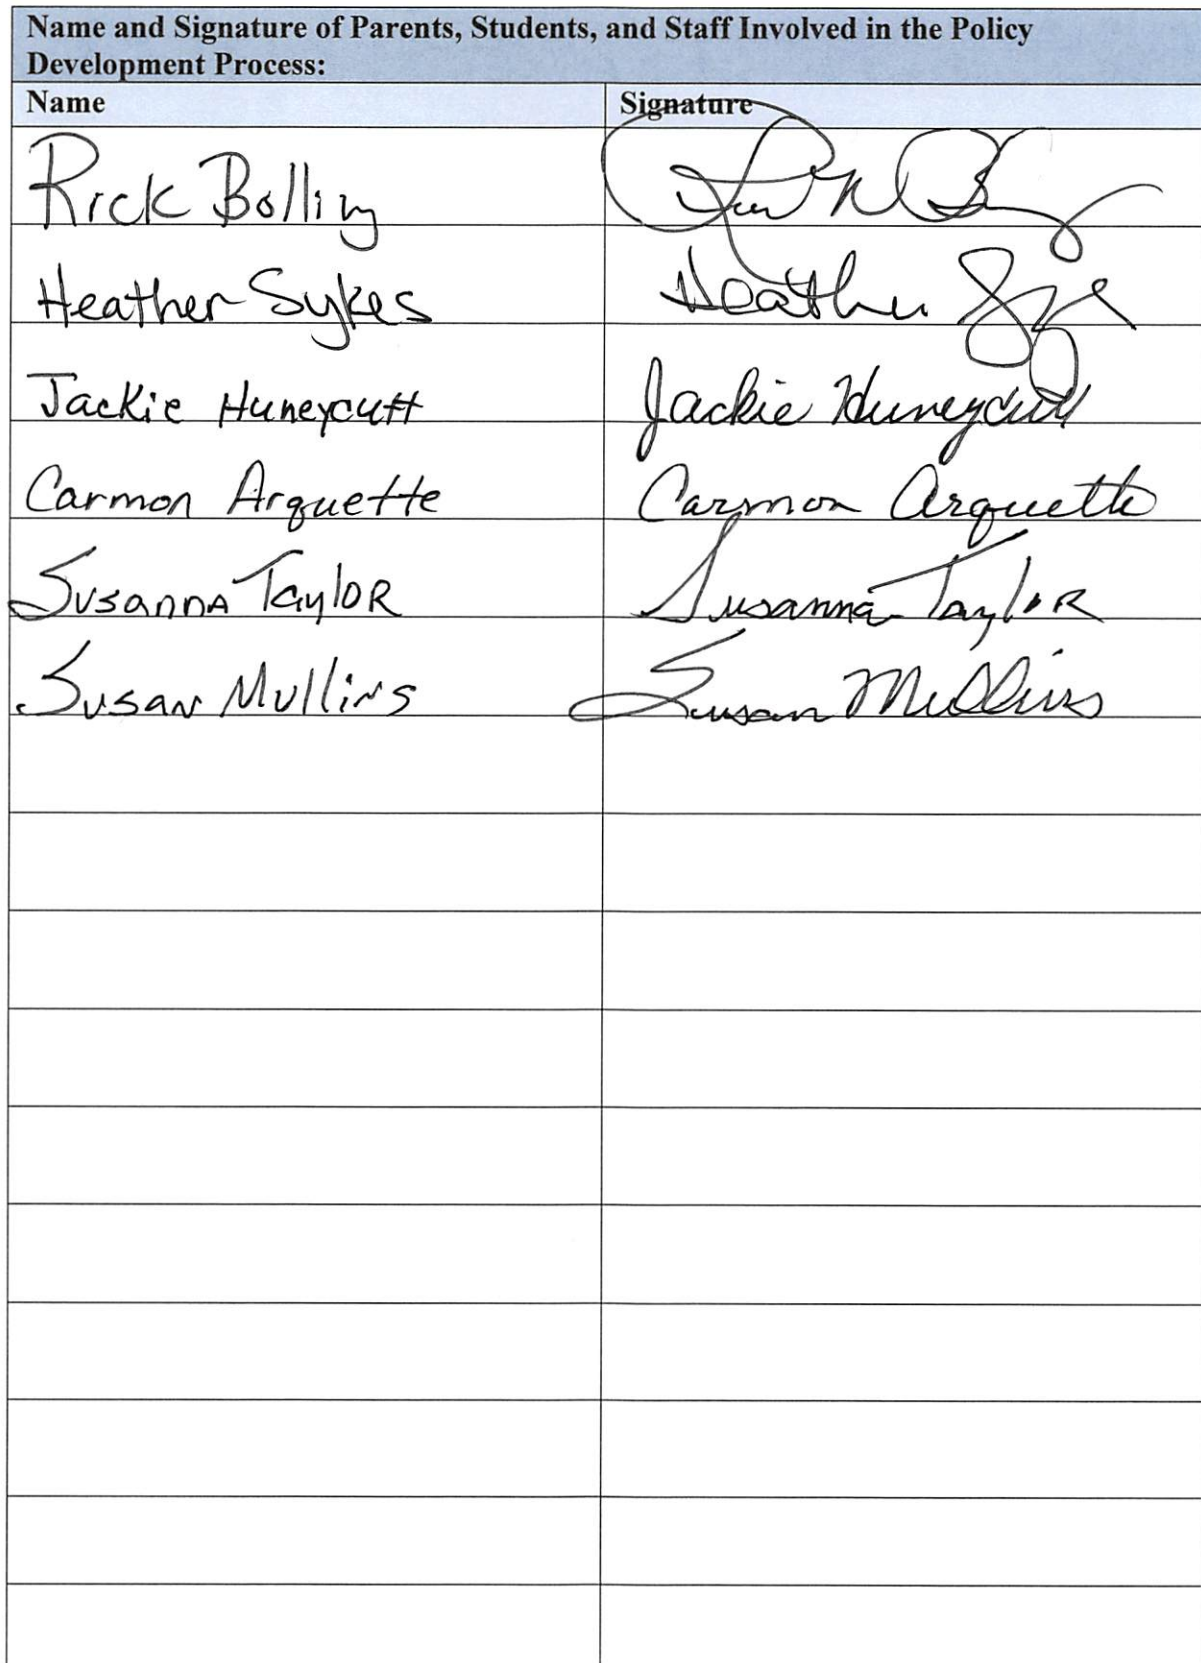 Name and Signature of Parents, Students, and Staff Involved in the Policy
Development Process:
Name Signature
Rick Bolling
Heather Sykes Heather
Jackie Huneycutt Jackie Huneycutt
Carmon Arquette Carmon Arquette
Susanna Taylor Susanna Taylor
Susan Mullins Susan Mullins